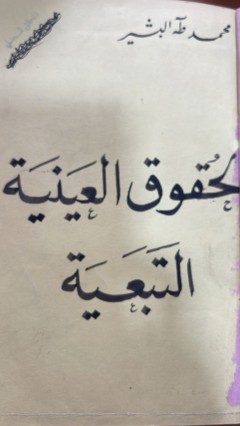 محمد طه البشير
لحقوق العينية
التبعية